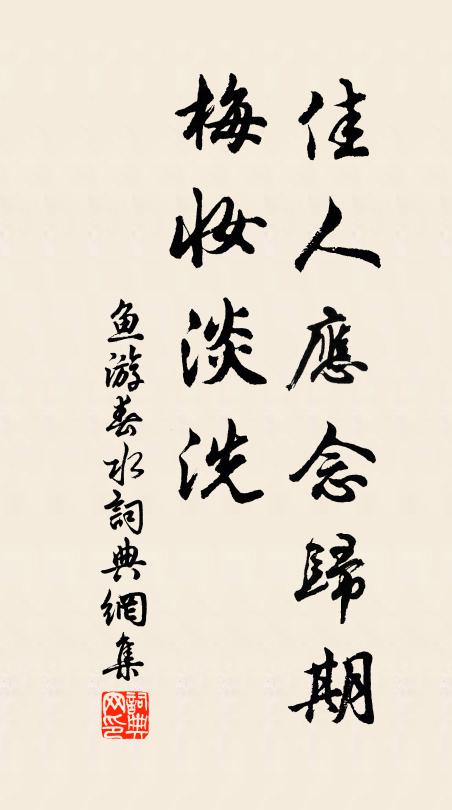 佳人應念歸期
梅妝淡洗
魚游春水詞典網集
詞典網印